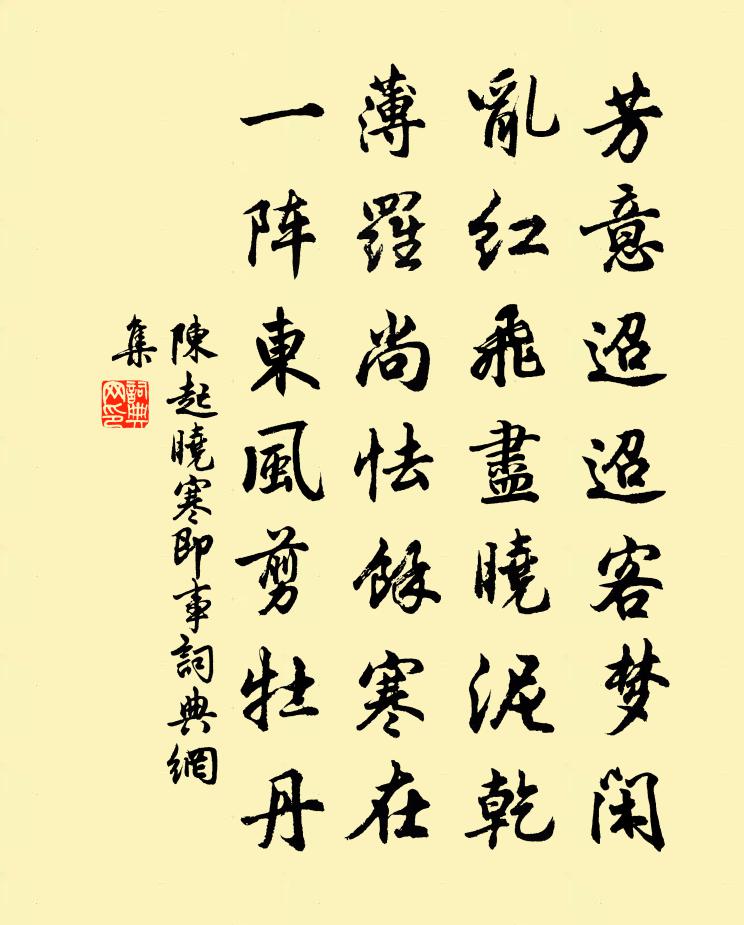 芳意迢迢客梦闲
亂红飛盡曉泥乾
薄羅尚怯餘寒在
一阵東風剪牡丹
陳起曉寒即事詞典網
集
詞典
网印